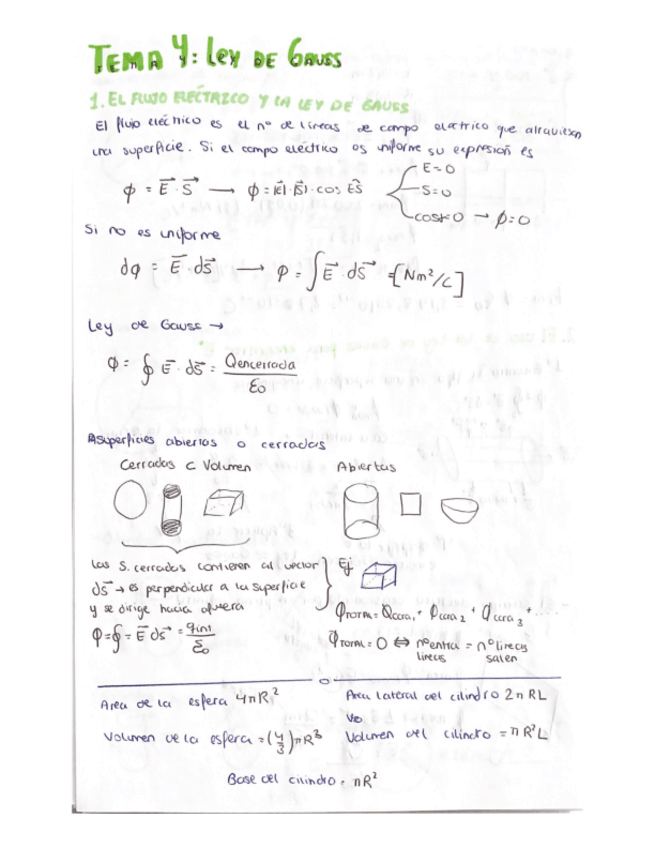 TEMA 4: LEY DE GAUSS
1. EL FLUJO ELÉCTRICO Y LA LEY DE GAUSS
El flujo eléctrico es el nº de líneas de campo eléctrico que atraviesan
una superficie. Si el campo eléctrico es uniforme su expresión es
E=0
ϕ = E⃗ · S⃗ → ϕ = |E⃗|·|S⃗|·cos ÊS
S=0
cosα=0 → ϕ=0
Si no es uniforme
dφ = E⃗ · ds⃗ → φ = ∫E⃗ · ds⃗ = [Nm²/C]
Ley de Gauss →
ϕ = ∮ E⃗ · ds⃗ = Qencerrada / ε0
superficies abiertas o cerradas
Cerradas c Volumen
Abiertas
Las S. cerradas contienen al vector
Ej
ds⃗ → es perpendicular a la superficie
y se dirige hacia afuera
φ=∮= E⃗ ds⃗ = qint / ε0
cara1 + φcara2 + φcara3 + ....
= 0 ⇔ nº entra = nº lineas
lineas salen
Area de la esfera 4πR²
Area lateral del cilindro 2πRL
Vo
Volumen de la esfera = (4/3)πR³
Volumen del cilindro = πR²L
Base del cilindro · πR²